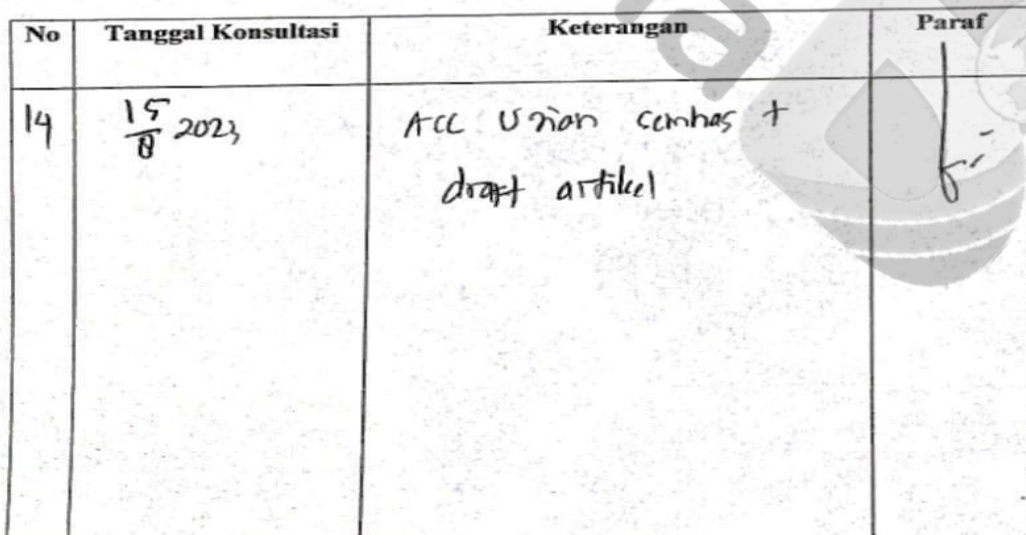 No Tanggal Konsultasi Keterangan Paraf
14 15/8 2023 ACC Ujian semhas +
draft artikel